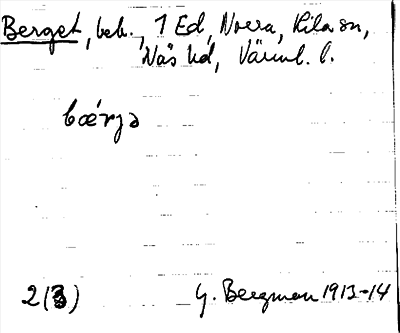 Berget, beb., 1 Ed, Norra, Kila sn,
Näs hd, Värml. l.
bærjə
2(3) G. Bergman 1913-14